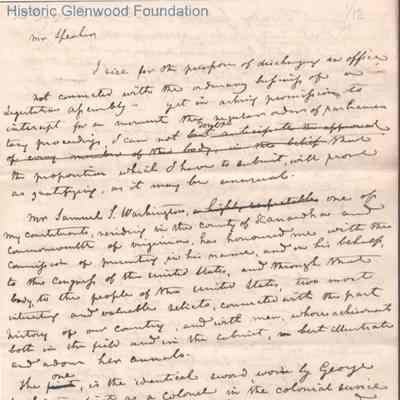 Historic Glenwood Foundation
1/12
Mr Speaker
I rise for the purpose of discharging an office
not connected with the ordinary business of a
legislative assembly - yet in asking permission to
interrupt for an moment the regular orders of parliamen
tary proceedings, I can not but anticipate the approval
of every member of this body, in the belief that
the proposition which I have to submit, will prove
as gratifying, as it may be unusual.
Mr Samuel T. Washington, a highly respectable one of
my constituents, residing in the county of Kanawha and
commonwealth of virginia, has honoured me with the
commission of presenting in his name, and on his behalf,
to the congress of the United States, and through that
body, to the people of the United States, two most
interesting and valuable relicts, connected with the past
history of our country, and with men, whose achievements
both in the field and in the cabinet, best illustrate
and adorn her annals.
The one first, is the identical sword worn by George
as a colonel in the colonial service